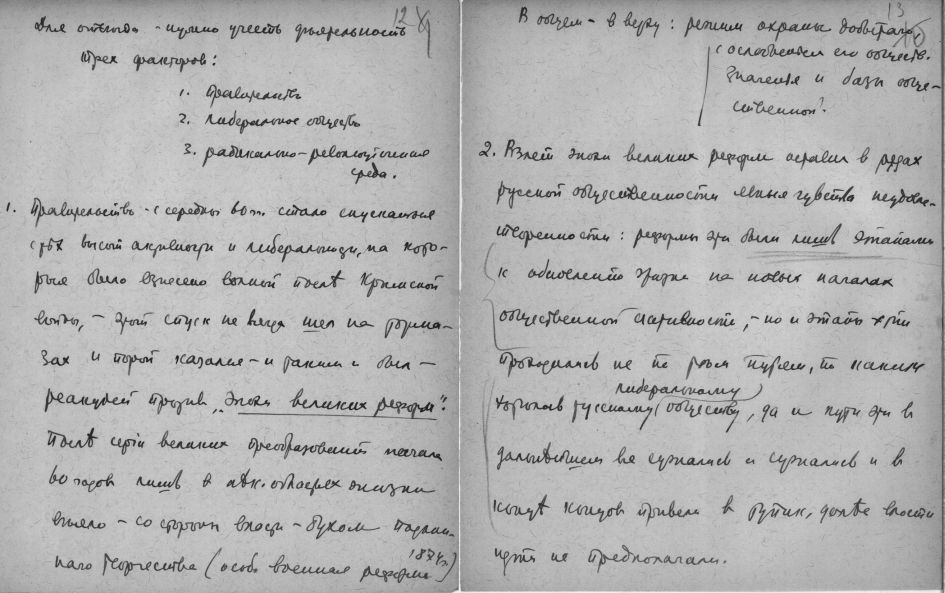 12
Для ответа - нужно учесть деятельность
трех факторов:
1. Правительств
2. либеральное общество
3. радикально-революционная
среда.
1. Правительство - с середины 60 гг. стало спускаться
с тѣх высот активности и либерализма, на кото-
рыя было взнесено волной послѣ Крымской
войны, - этот спуск не всегда шел на тормо-
зах и порой казался - и таким и был -
реакцией против "эпохи великих реформ".
Послѣ серии великих преобразований начала
60 годов лишь в нѣк. областях жизни
веяло - со стороны власти - духом подлин-
наго творчества (особ. военная реформа 1874 г.)
13
В общем - в верху: режим охраны
с ослаблением его обществ.
значения и базы обще-
ственной.
2. Взлет эпохи великих реформ оставил в рядах
русской общественности явныя чувства неудовле-
творенности: реформы эти были лишь этапами
к обновлению жизни на новых началах
общественной активности, - но и этапы эти
проходились не по тем путем, по каким
хотелось русскому либеральному обществу, да и пути эти в
дальнѣйшем все сужались и сужались и в
концѣ концов привели в тупик, далѣе власти
идти не предполагали.